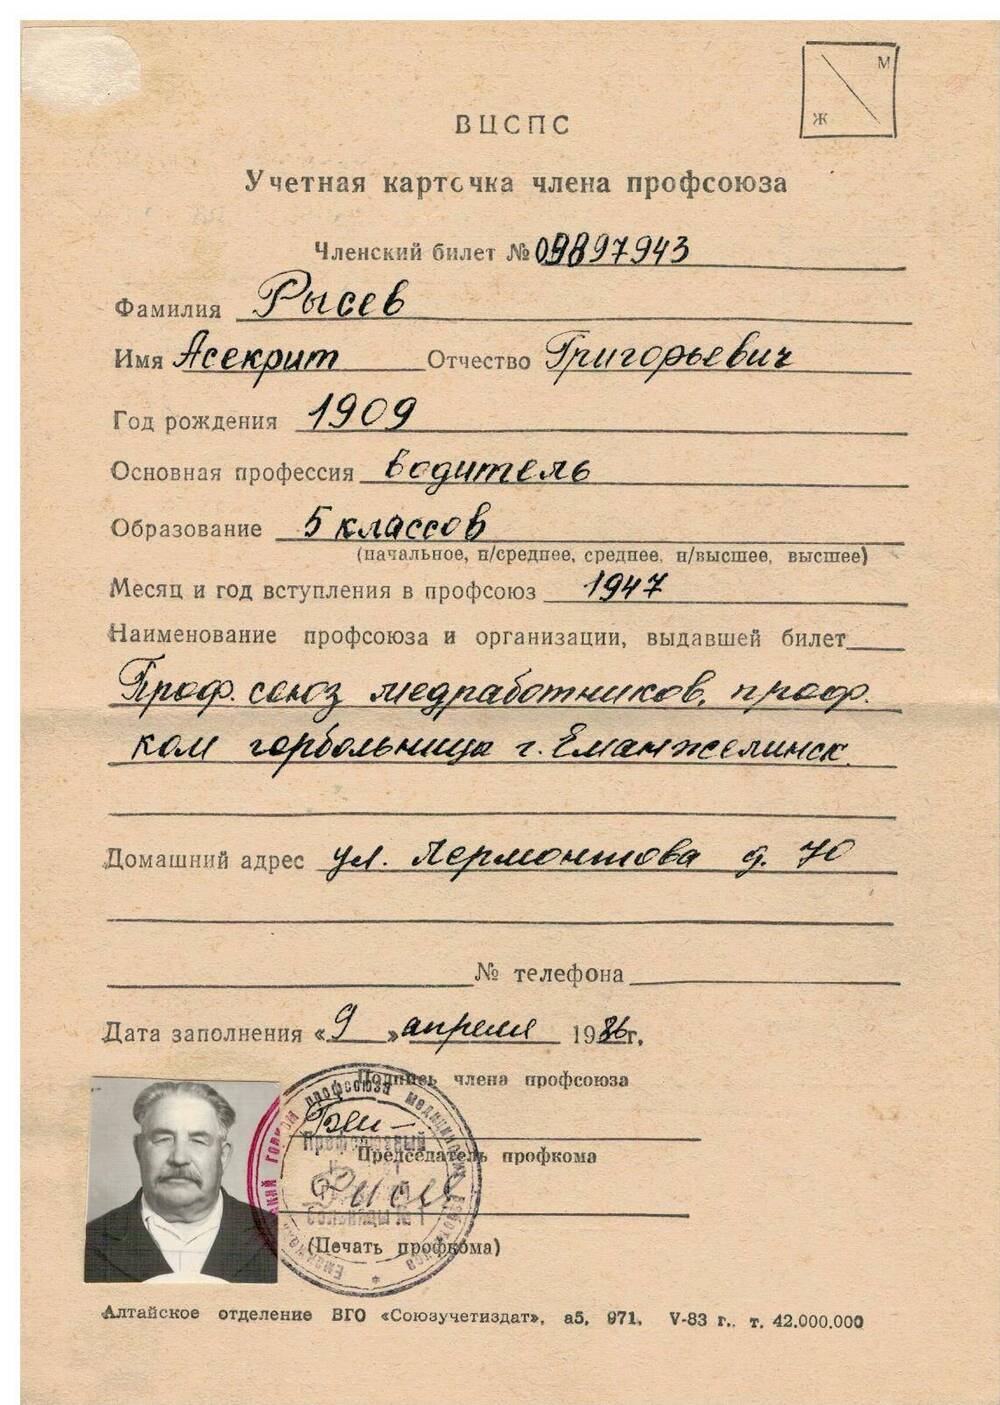 М
Ж
ВЦСПС
Учетная карточка члена профсоюза
Членский билет № 09897943
Фамилия Рысев
Имя Асекрит Отчество Григорьевич
Год рождения 1909
Основная профессия водитель
Образование 5 классов
(начальное, н/среднее, среднее, н/высшее, высшее)
Месяц и год вступления в профсоюз 1947
Наименование профсоюза и организации, выдавшей билет
Проф. союз медработников, проф.
ком горбольница г. Еманжелинск.
Домашний адрес ул. Лермонтова д. 70
№ телефона
Дата заполнения «9» апреля 1986 г.
Подпись члена профсоюза
Председатель профкома
(Печать профкома)
горком профсоюза медицинских работников
Профсоюзный
больницы № 1
Алтайское отделение ВГО «Союзучетиздат», а5, 971, V-83 г., т. 42.000.000